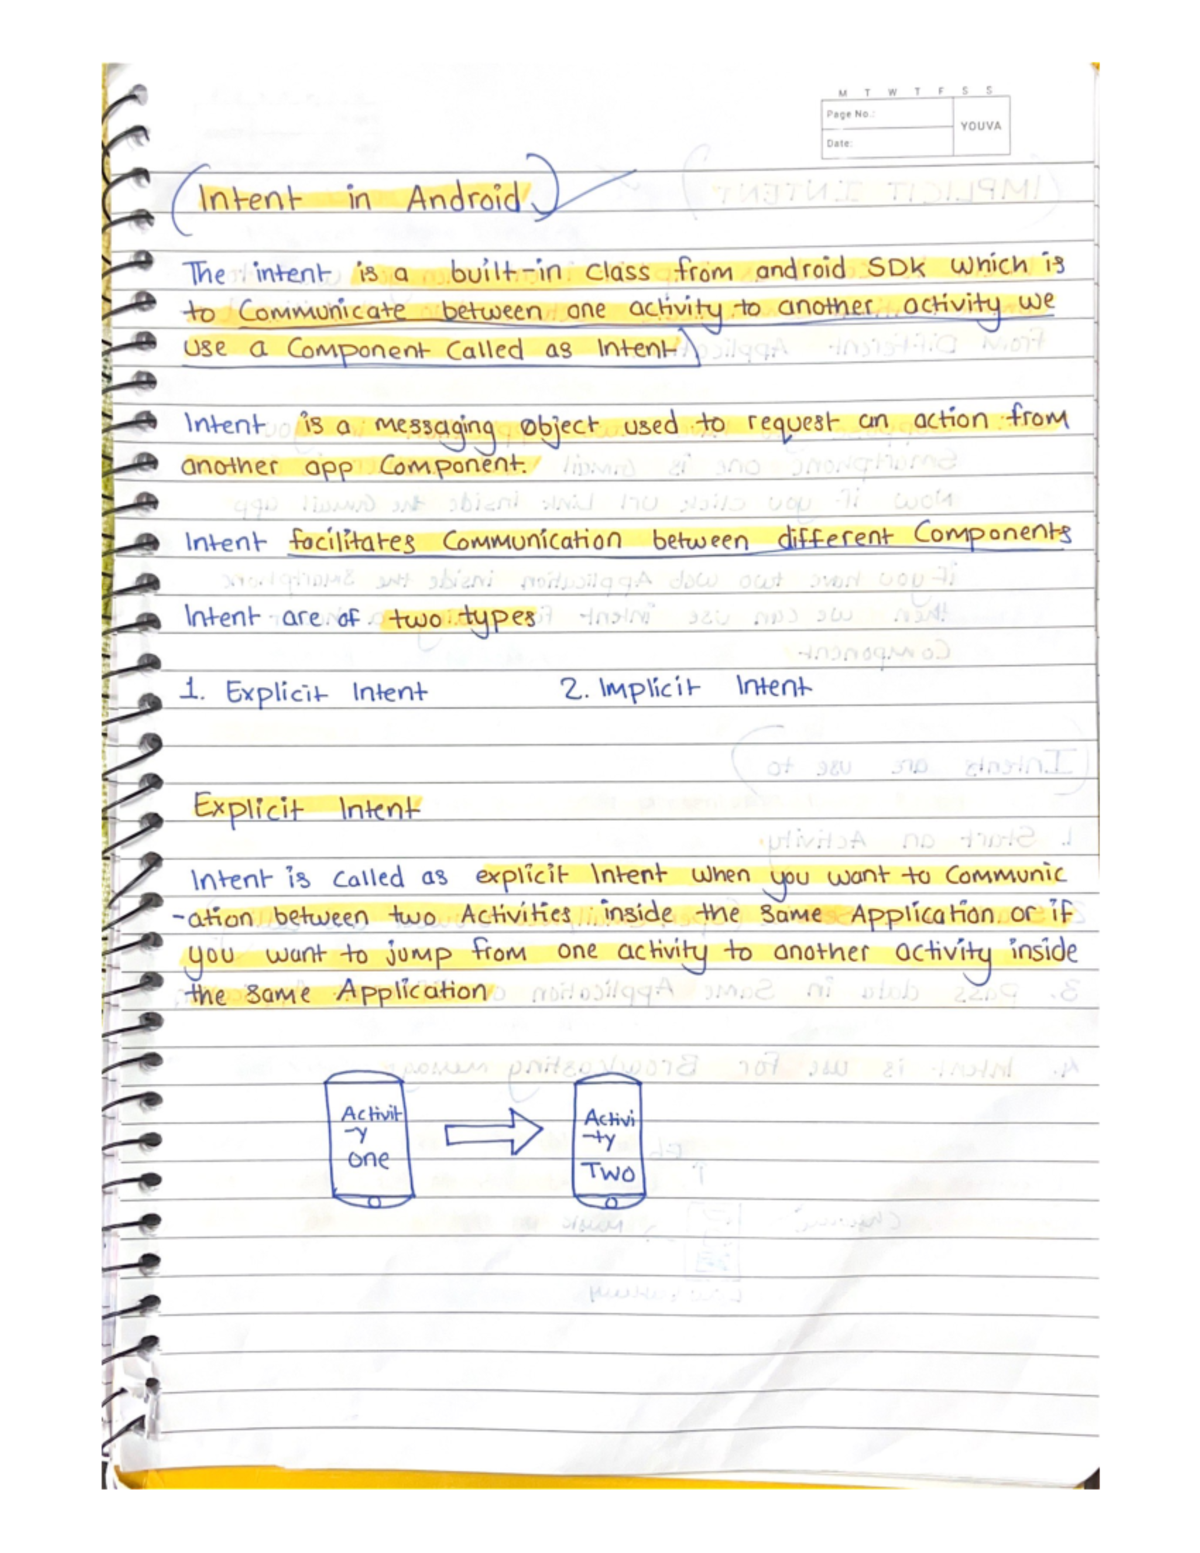 M T W T F S S
Page No.:
YOUVA
Date:
(Intent in Android)
The intent is a built-in class from android SDK which is
to Communicate between one activity to another activity we
use a Component Called as Intent)
Intent is a messaging object used to request an action from
another app Component.
Intent facilitates Communication between different Components
Intent are of two types
1. Explicit Intent 2. Implicit Intent
Explicit Intent
Intent is called as explicit Intent when you want to Communic
-ation between two Activities inside the same Application or if
you want to jump from one activity to another activity inside
the same Application
Activit
-y
one
Activi
-ty
Two